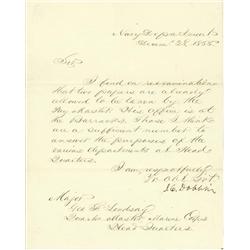 Navy Department
Decr. 28, 1855.
Sir
I find on reexamination
that two papers are already
allowed to be taken by the
Pay Master. His Office is at
the Barracks. These I think
are a sufficient number to
answer the purposes of the
various departments at Head
Quarters.
I am, respectfully
Yr. Obt. Svt.
J.C. Dobbin
Major
Geo. F. Lindsay
Quarter Master Marine Corps
Head Quarters